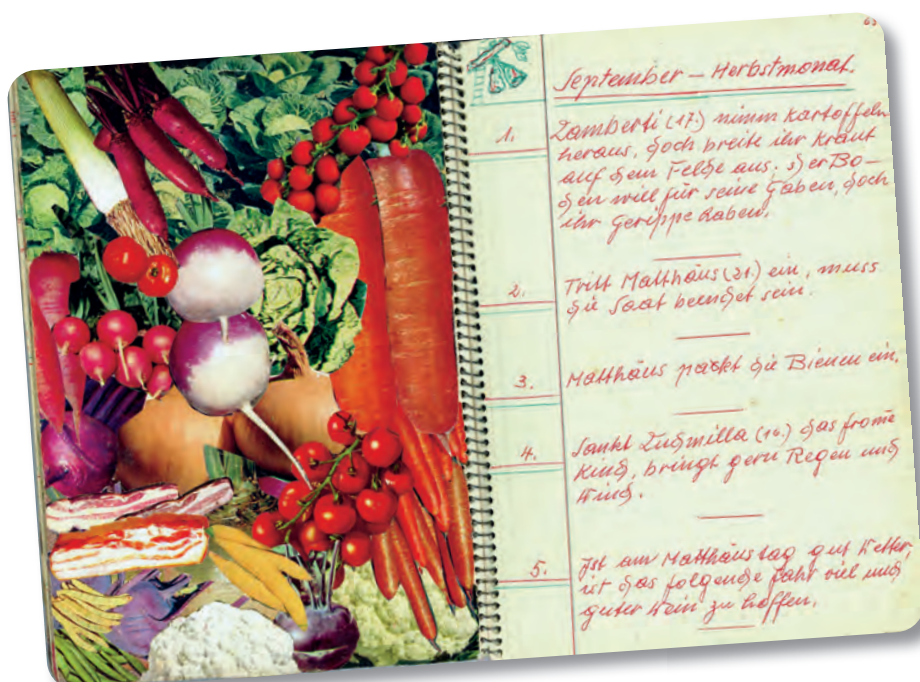 63
September – Herbstmonat.
1. Lamberti (17.) nimm Kartoffeln
heraus, doch breite ihr Kraut
auf dem Felde aus. der Bo–
den will für seine Gaben, doch
ihr Gerippe haben.
2. Tritt Matthäus (21.) ein, muss
die Saat beendet sein.
3. Matthäus packt die Bienen ein.
4. Sankt Ludmilla (16.) das from̄e
Kind, bringt gern Regen und
Wind.
5. Ist am Matthäustag gut Wetter,
ist das folgende Jahr viel und
guter Wein zu hoffen.